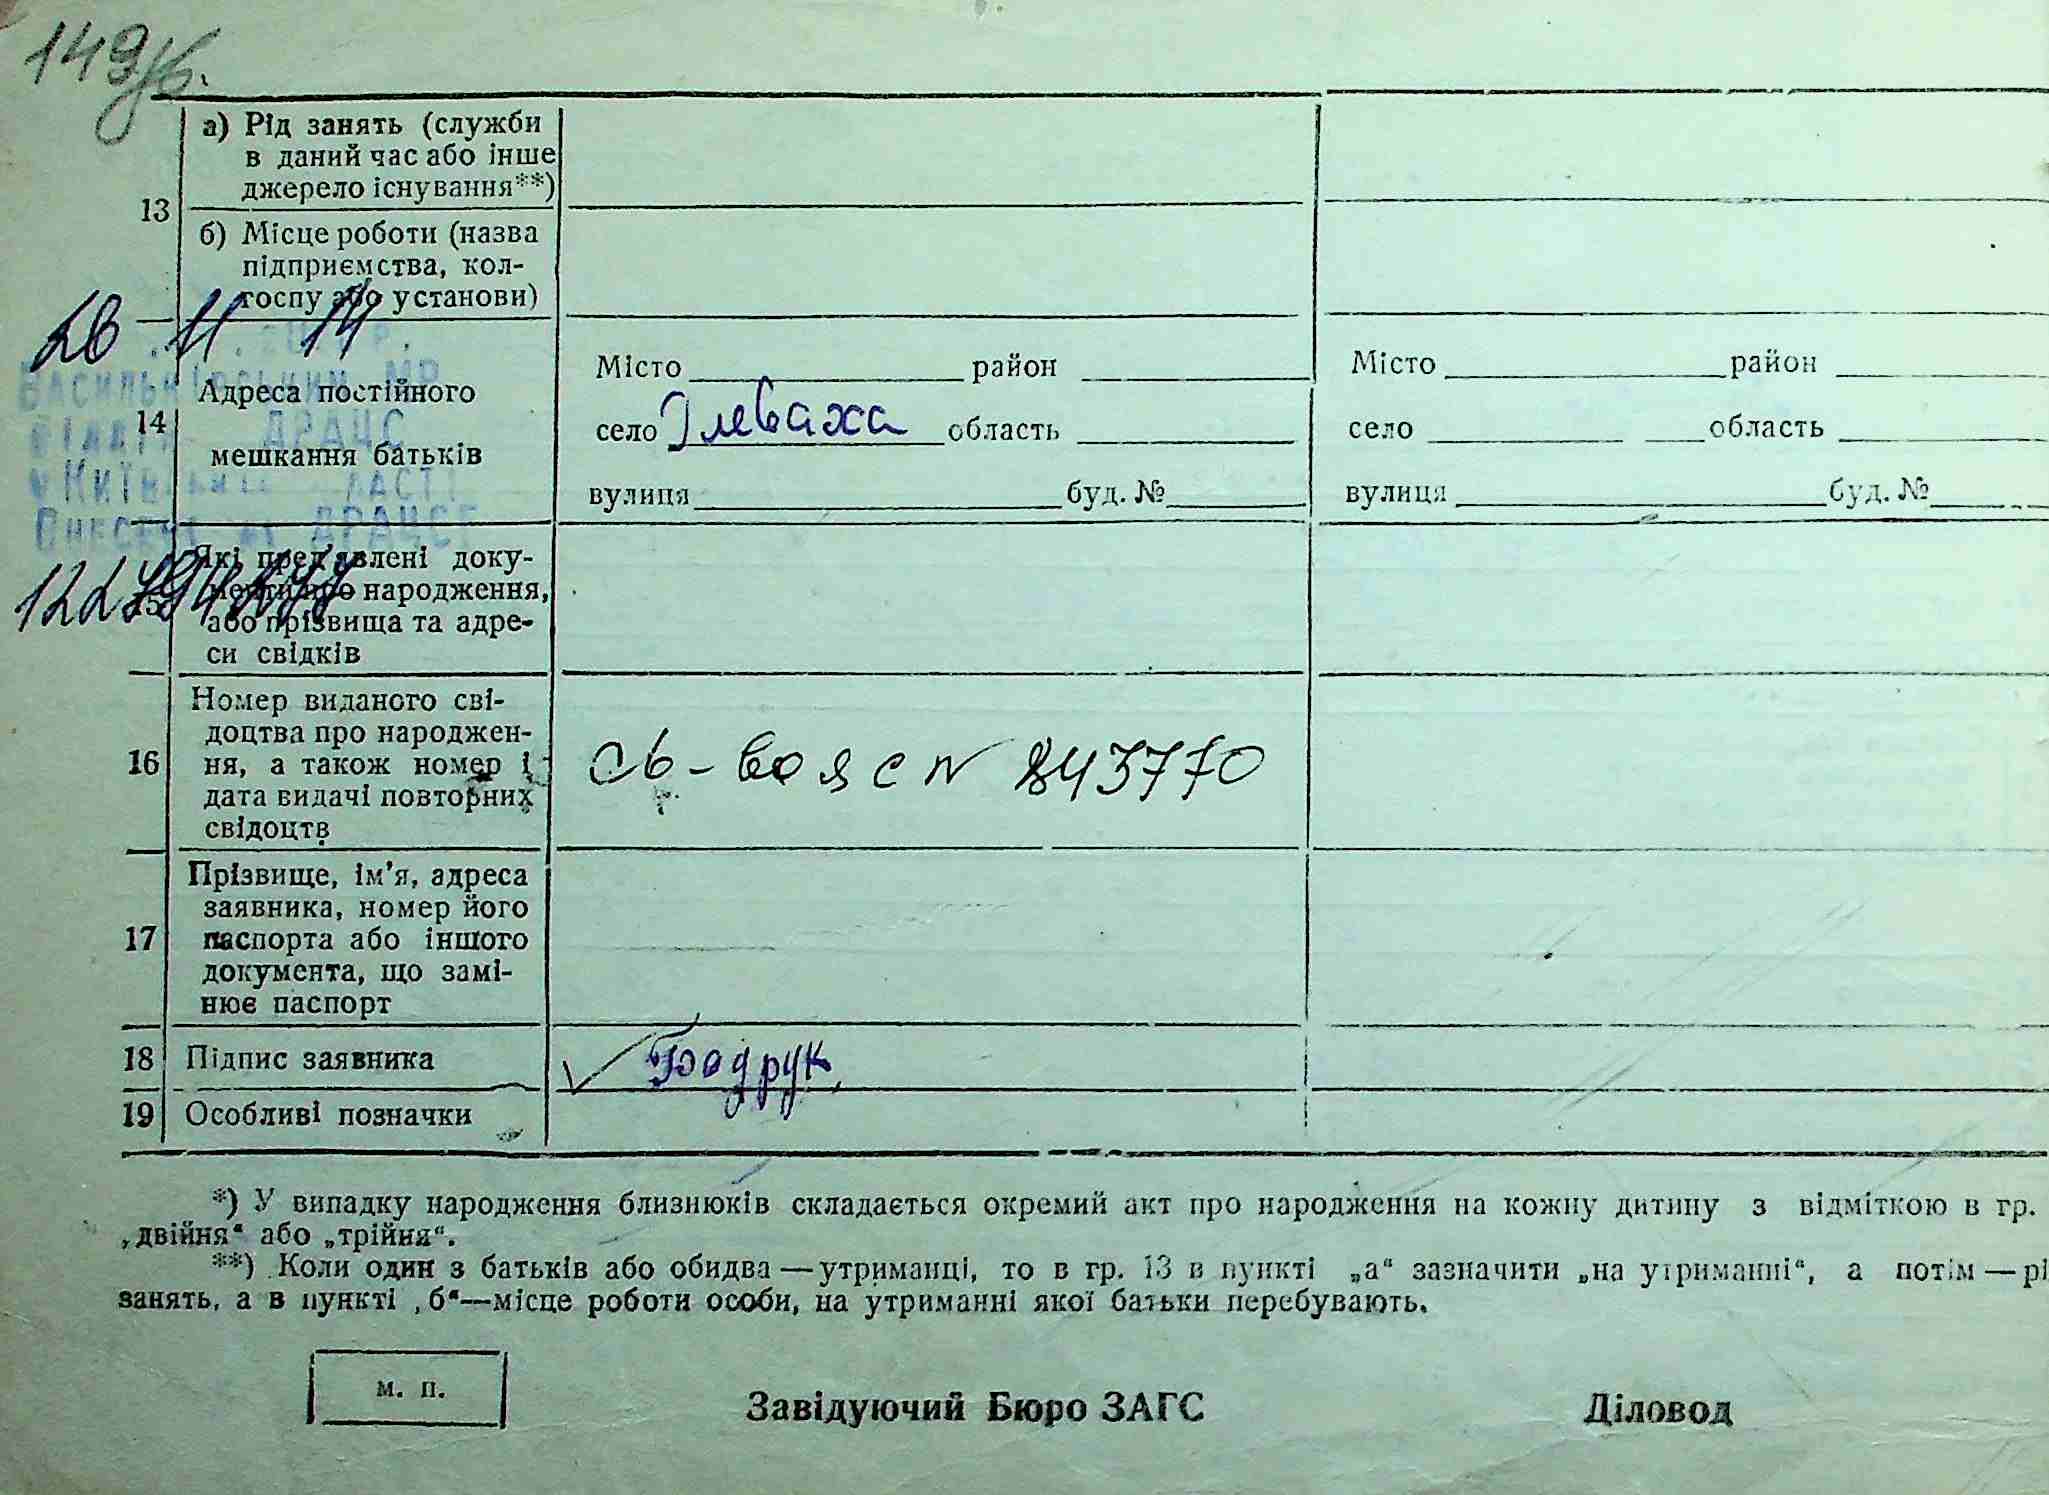 149
а) Рід занять (служби
в даний час або інше
джерело існування**)
13
б) Місце роботи (назва
підприємства, кол-
госпу або установи)
11 14
Васильківським МР
ДРАЦС
14
Адреса постійного
мешкання батьків
Місто район
село Глеваха область
вулиця буд. №
Місто район
село область
вулиця буд. №
15
Які пред'явлені доку-
менти про народження,
або прізвища та адре-
си свідків
16
Номер виданого сві-
доцтва про народжен-
ня, а також номер і
дата видачі повторних
свідоцтв
№ 843770
17
Прізвище, ім’я, адреса
заявника, номер його
паспорта або іншого
документа, що замі-
нює паспорт
18 Підпис заявника Бодрук
19 Особливі позначки
*) У випадку народження близнюків складається окремий акт про народження на кожну дитину з відміткою в гр.
„двійня“ або „трійня“.
**) Коли один з батьків або обидва — утриманці, то в гр. 13 в пункті „а“ зазначити „на утриманні“, а потім — рі
занять, а в пункті „б“—місце роботи особи, на утриманні якої батьки перебувають.
м. п.
Завідуючий Бюро ЗАГС Діловод